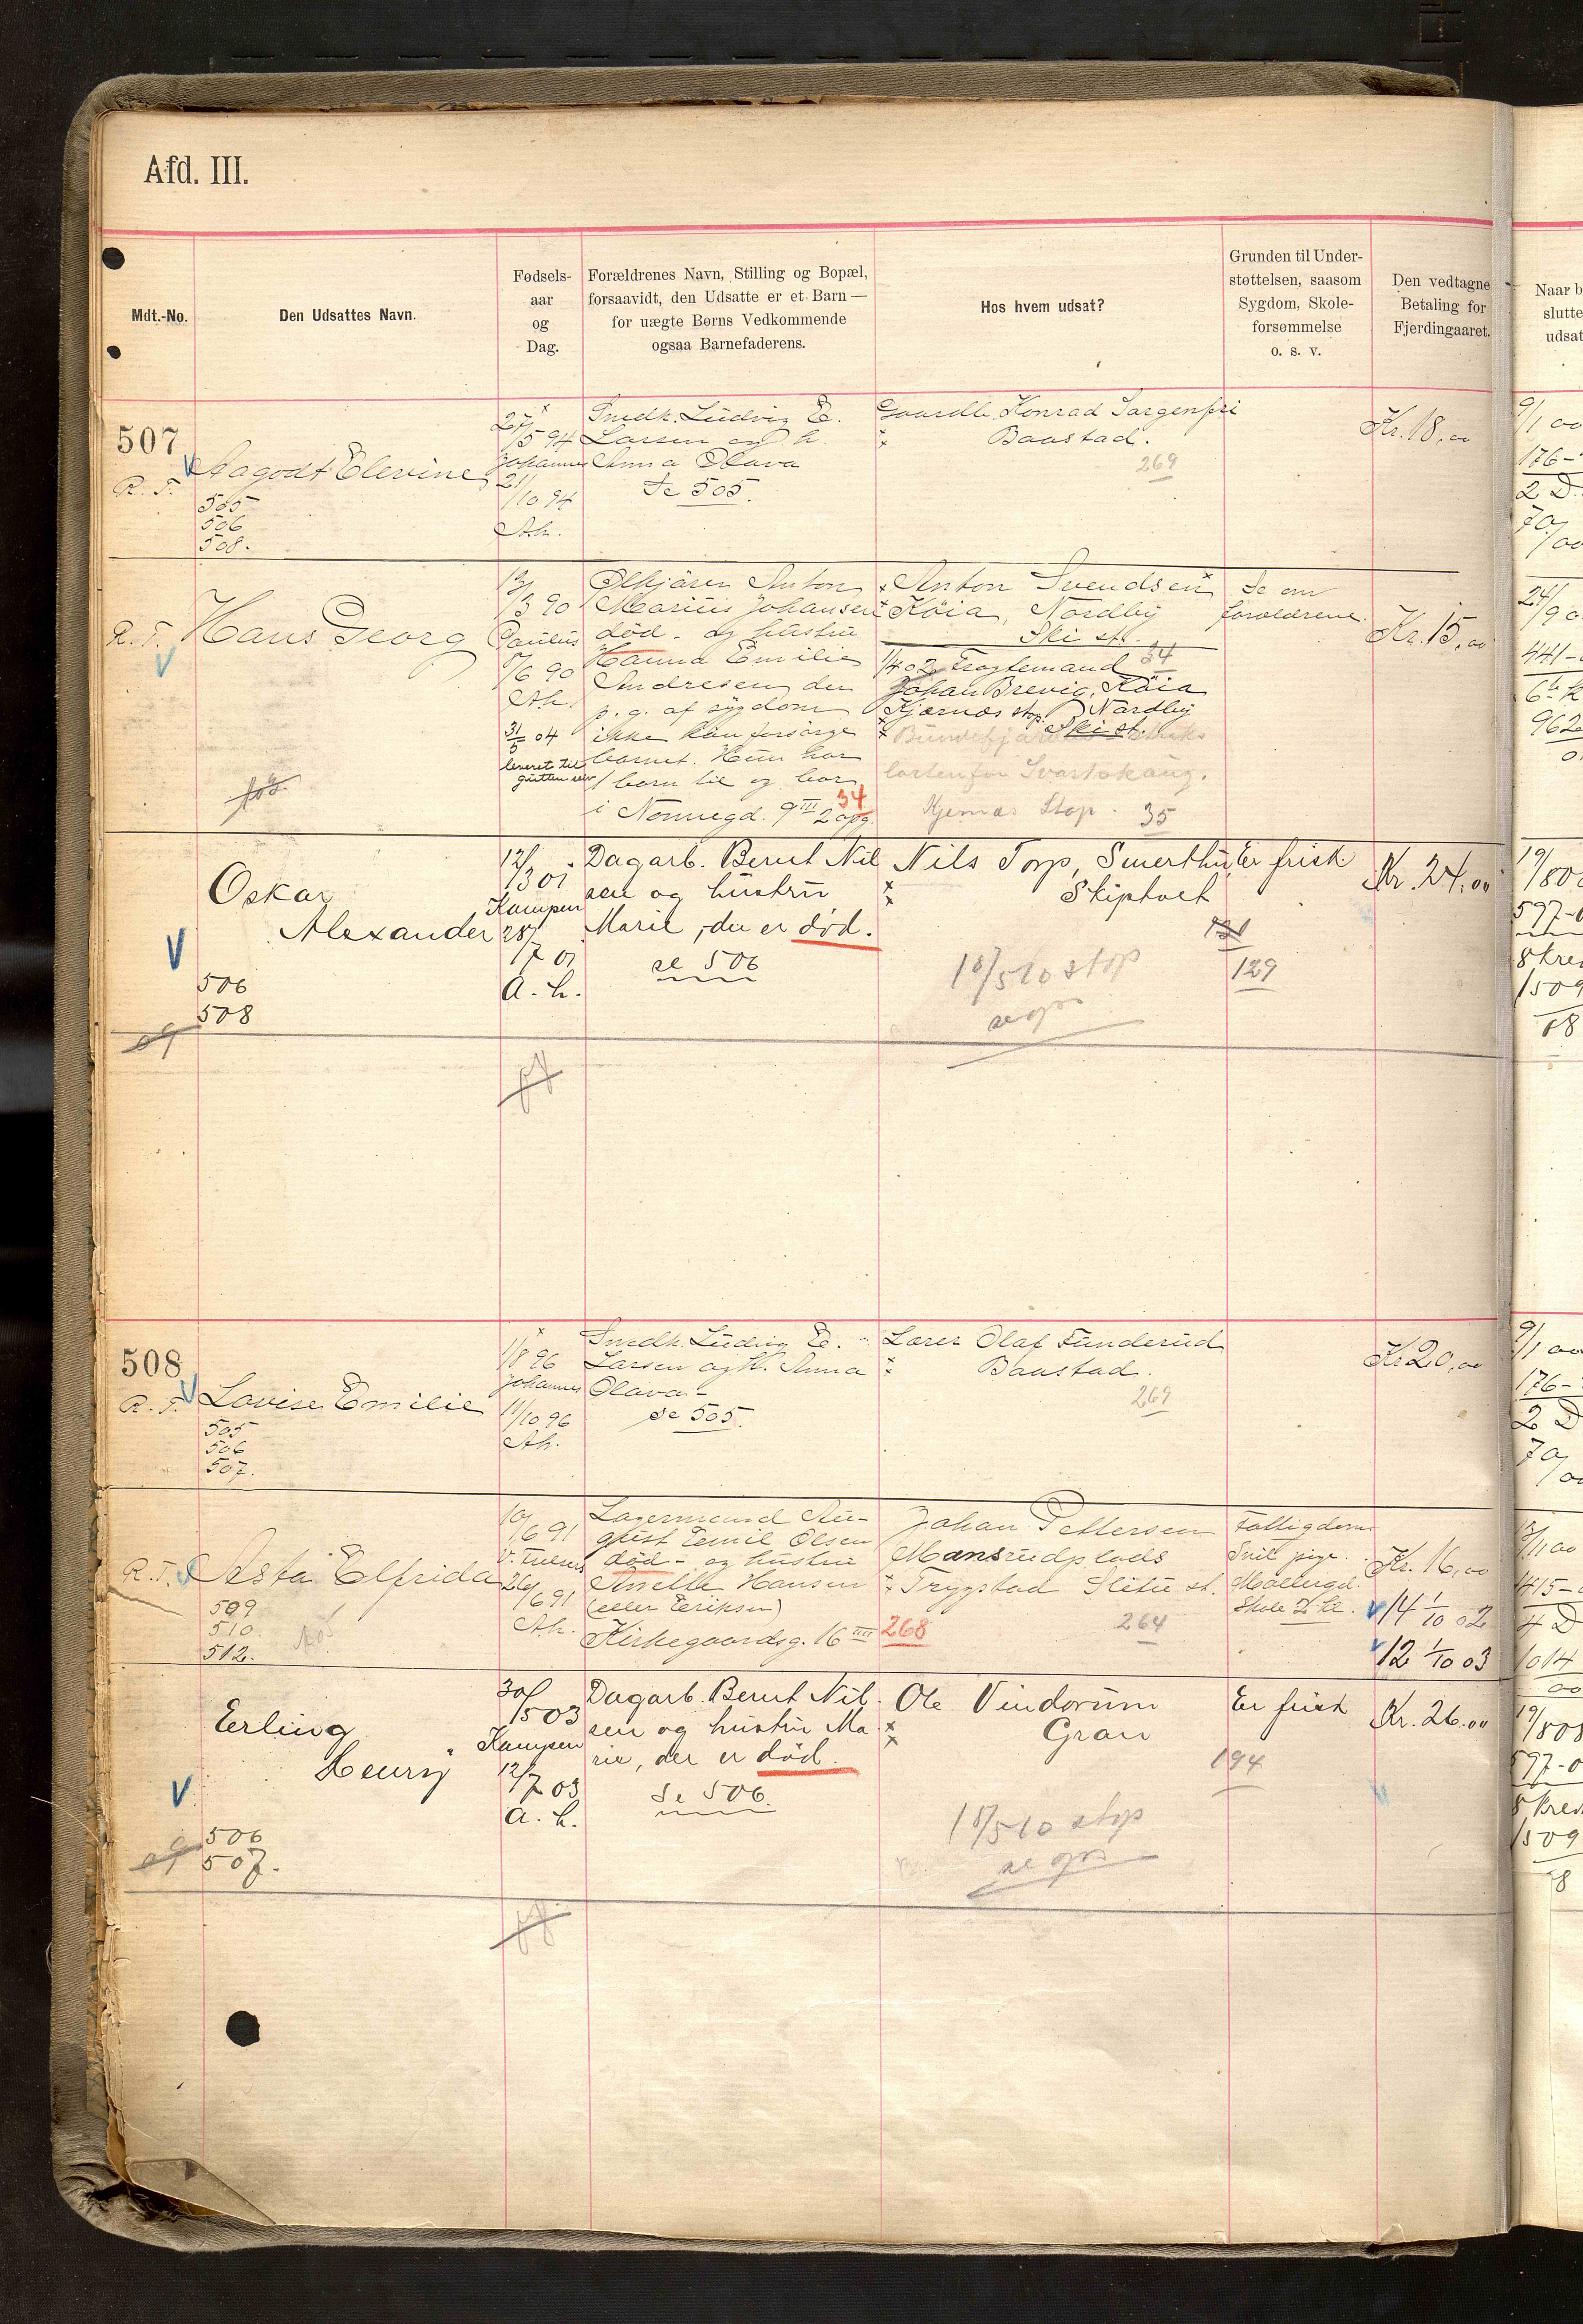 Afd. III.
Mdt.-No.
Den Udsattes Navn.
Fødsels-
aar
og
Dag.
Forældrenes Navn, Stilling og Bopæl,
forsaavidt, den Udsatte er et Barn —
for uægte Børns Vedkommende
ogsaa Barnefaderens.
Hos hvem udsat?
Grunden til Under-
støttelsen, saasom
Sygdom, Skole-
forsømmelse
o. s. v.
Den vedtagne
Betaling for
Fjerdingaaret.
Naar b
slutte
udsat
507
R. T.
Aagodt Elevine
505
506
508.
27/
/5 94
Johannes
21/
/10 94
A.h.
Smedk. Ludvig E.
Larsen og h.
Anna Olava
Se 505.
Gaardb. Konrad Sorgenfri
Baastad.
269
Kr. 18,00
9/1 00
176-
2 D.
R. T.
Hans Georg
13/
/3 90
Paulus
/6 90
A.h.
31/5 04
leveret til
gutten selv
Ølkjører Anton
Marius Johansen
død - og hustru
Hanna Emilie
Andresen, den
p. g. af sygdom
ikke kan forsørge
barnet. Hun har
1 barn til og bor
i Nonnegd. 9 III 2 opg.
34
Anton Svendsen
Köia, Nordby
Ski st.
34
1/4 02 Frogtemand
Johan Brevig, Köia
Kjærnæs stop. Nordby
Ski st.
Svartskaug.
Kjernæs Stop. 35
Se om
forældrene.
Kr. 15,00
24/9 0
441-
962
Oskar
Alexander
506
508
09
12/
/3 01
Kampen
28/
/7 01
A. h.
Dagarb. Bernt Nil
sen og hustru
Marie, der er død.
se 506
Nils Torp, Smerthu
Skiptvet
18/5 10 stop
se op
Er frisk
131
129
Kr. 24.00
19/8 0
597-0
1509
508
R. T.
Lovise Emilie
505
506
507.
1/
/8 96
Johannes
11/
/10 96
A.h.
Smedk. Ludvig E.
Larsen og h. Anna
Olava -
Se 505.
Lærer Olaf Funderud
Baastad.
269
Kr 20,00
9/1 00
176-
2 D
R. T.
Asta Elfrida
509
510
512.
10/
/6 91
26/
/6 91
A.h.
Lagermand Au-
gust Emil Olsen
død - og hustru
Anette Hansen
(eller Eriksen)
Kirkegaardsg. 16 IIII
268
Johan Pettersen
Mansrudplads
Trygstad Slitu st.
264
Fattigdom
Snil pige.
Møllergd.
Skole 2 kl.
Kr. 16,00
14 1/10 02
12 1/10 03
/11 00
415-
4 D
1014
Erling
Henry
506
507.
09
30/
/5 03
Kampen
12/
/7 03
A. h.
Dagarb. Bernt Nil
sen og hustru Ma
rie, der er død.
Se 506.
Ole Vindorum
Gran
194
18/5 10 stop
se op
Er frisk
Kr. 26.00
19/8 08
597-0
1509